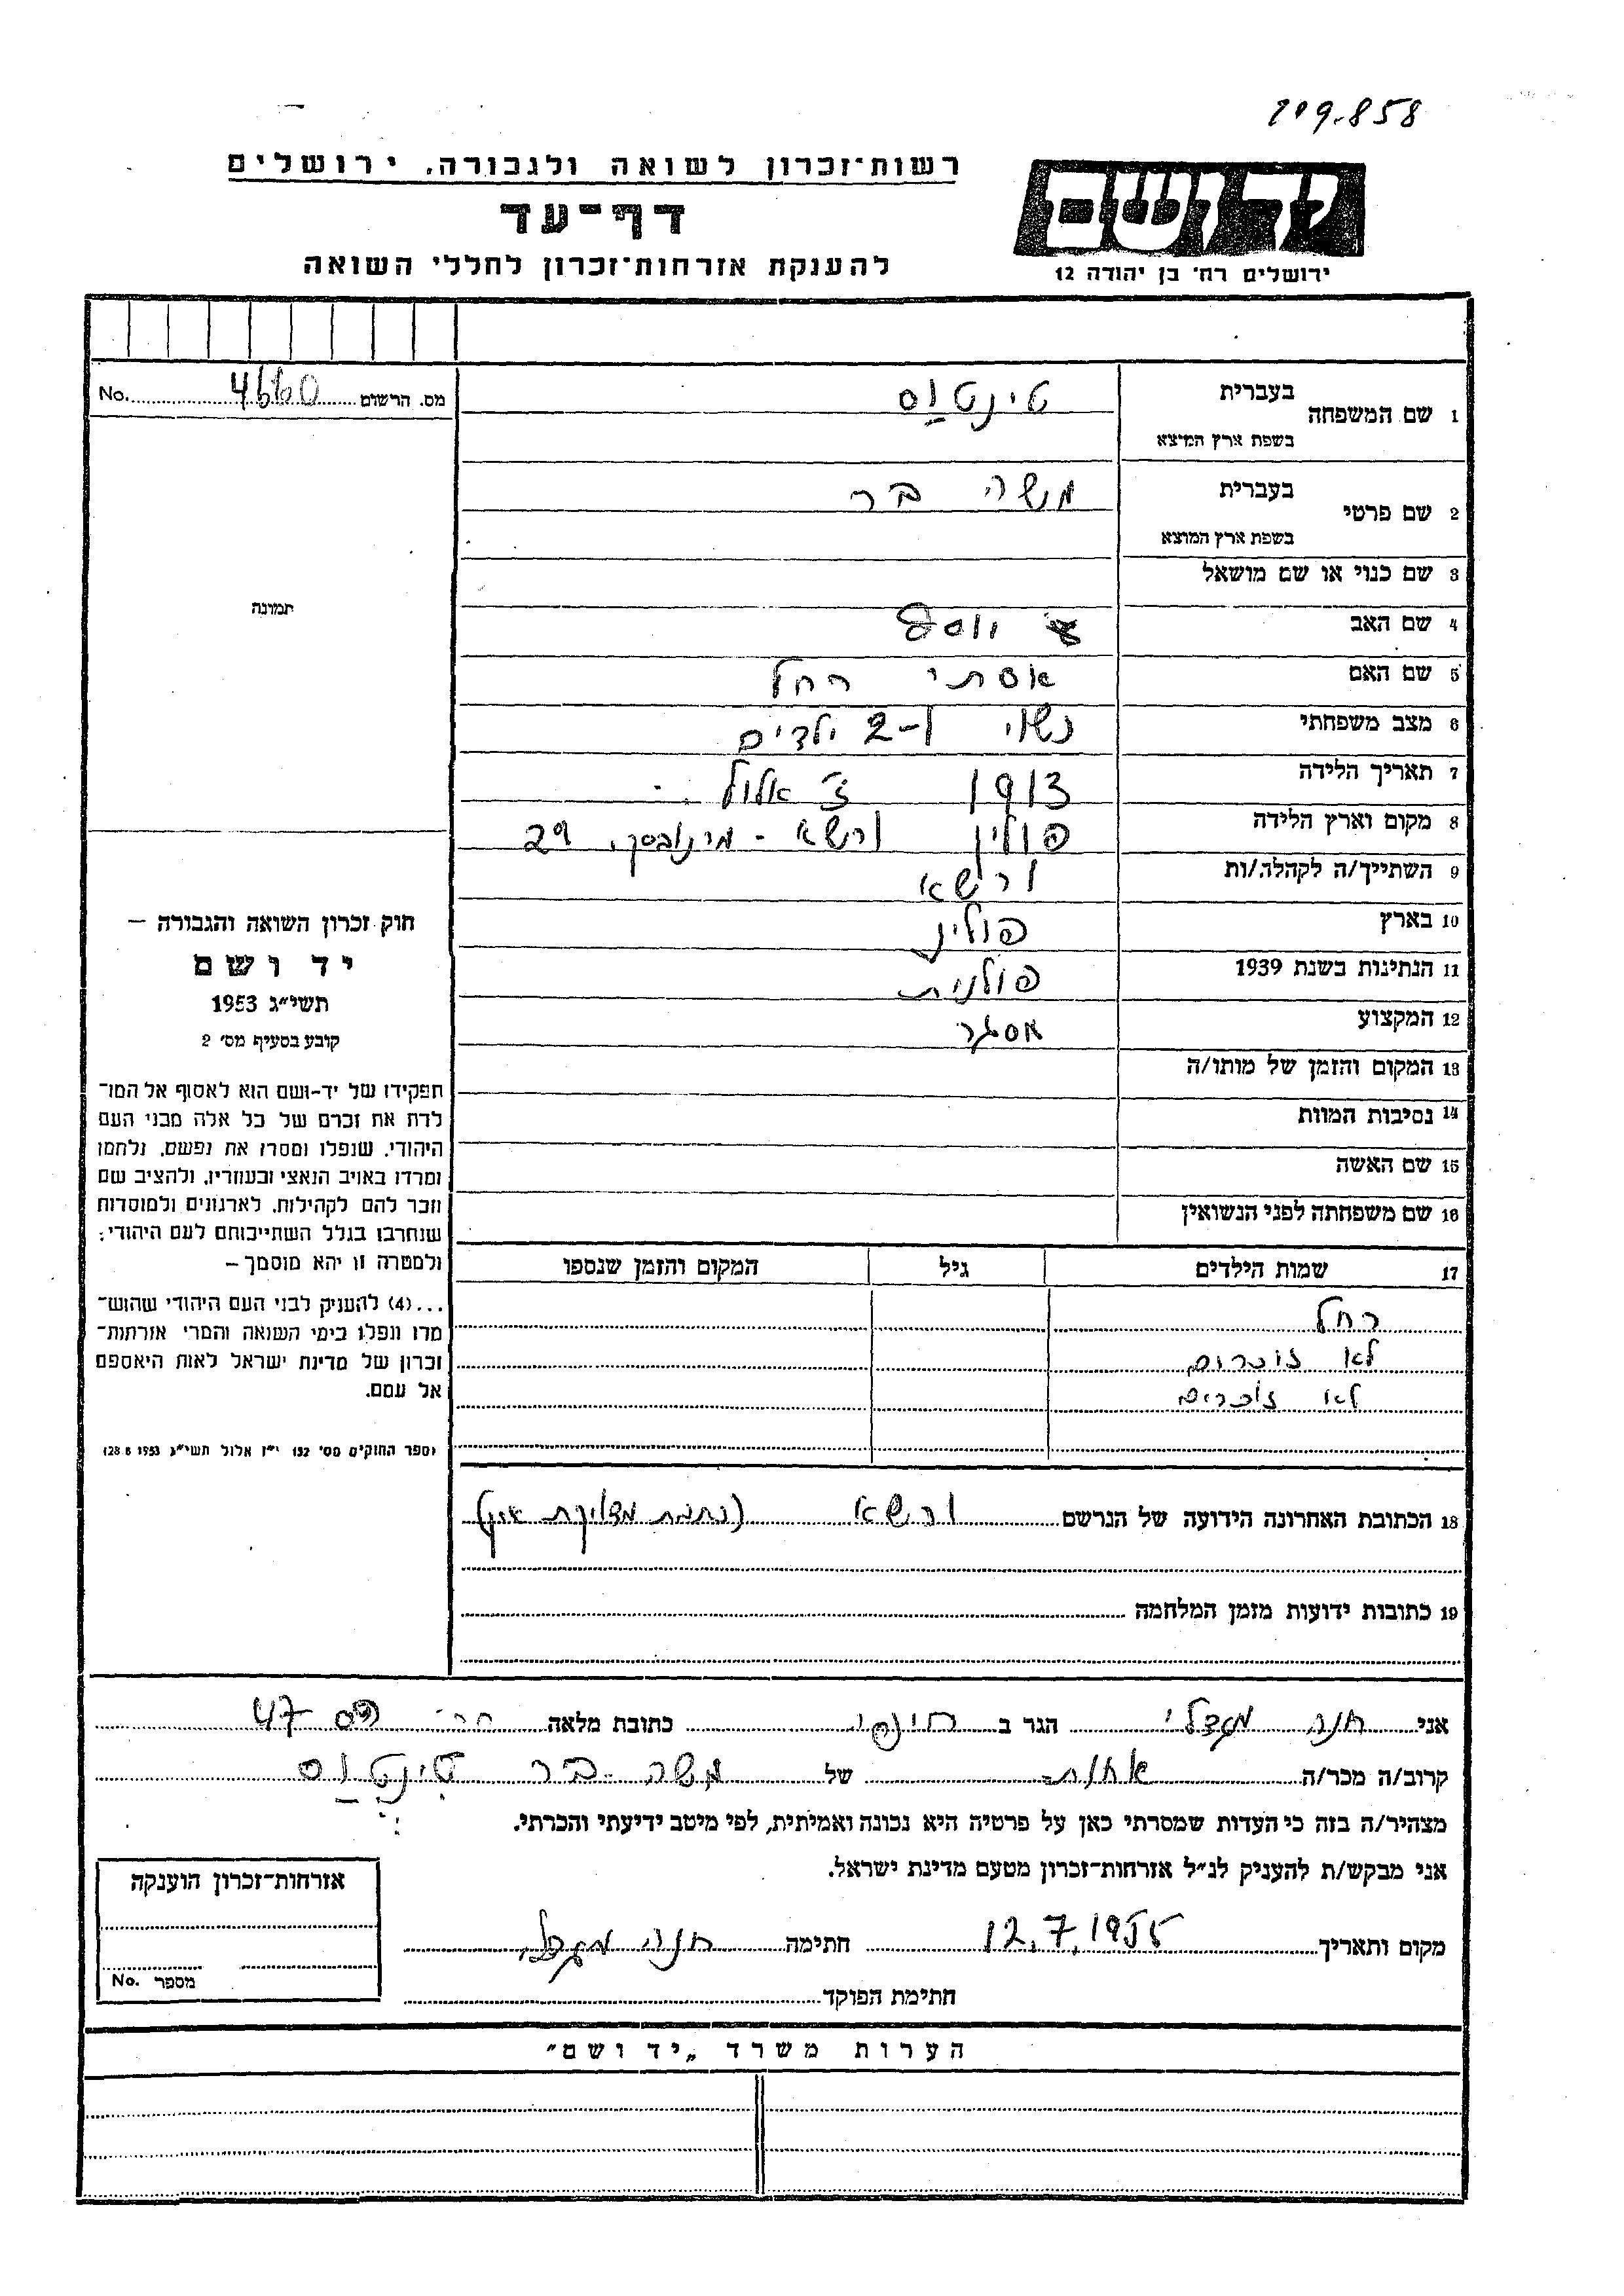 119.858
ידושם
ירושלים רח׳ בן יהודה 12
רשות־זכרון לשואה ולגבורה, ירושלים
דף־עד
להענקת אזרחות־זכרון לחללי השואה
מס. הרשום 4660 No.
1 שם המשפחה בעברית טינטוס
בשפת ארץ המיצא
2 שם פרטי בעברית משה בר
בשפת ארץ המוצא
3 שם כנוי או שם מושאל
4 שם האב יוסף
5 שם האם אסתי רחל
6 מצב משפחתי נשוי ו-2 ילדים
7 תאריך הלידה 1913 אלול
8 מקום וארץ הלידה פולין ורשא - 29
9 השתייך/ה לקהלה/ות ורשא
10 בארץ פולין
11 הנתינות בשנת 1939 פולנית
12 המקצוע
13 המקום והזמן של מותו/ה
14 נסיבות המוות
15 שם האשה
16 שם משפחתה לפני הנשואין
17 שמות הילדים גיל המקום והזמן שנספו
רחל
לא זוכרים
לא זוכרים
18 הכתובת האחרונה הידועה של הנרשם ורשא
19 כתובות ידועות מזמן המלחמה
תמונה
חוק זכרון השואה והגבורה –
יד ושם
תשי״ג 1953
קובע בסעיף מס׳ 2
תפקידו של יד-ושם הוא לאסוף אל המו־
לדת את זכרם של כל אלה מבני העם
היהודי, שנפלו ומסרו את נפשם, נלחמו
ומרדו באויב הנאצי ובעוזריו, ולהציב שם
וזכר להם לקהילות, לארגונים ולמוסדות
שנחרבו בגלל השתייכותם לעם היהודי;
ולמטרה זו יהא מוסמך –
...(4) להעניק לבני העם היהודי שהוש־
מדו ונפלו בימי השואה והמרי אזרחות־
זכרון של מדינת ישראל לאות היאספם
אל עמם.
וספר החוקים מס׳ 132 י״ז אלול תשי״ג 28.8.1953
אני חנה מגדלי הגר ב חיפה כתובת מלאה 47
קרוב/ה מכר/ה אחות של משה בר טינטוס
מצהיר/ה בזה כי העדות שמסרתי כאן על פרטיה היא נכונה ואמיתית, לפי מיטב ידיעתי והכרתי.
אני מבקש/ת להעניק לנ״ל אזרחות־זכרון מטעם מדינת ישראל.
מקום ותאריך 12.7.1955 חתימה חנה מגדלי
חתימת הפוקד
אזרחות־זכרון הוענקה
מספר No.
הערות משרד „יד ושם״